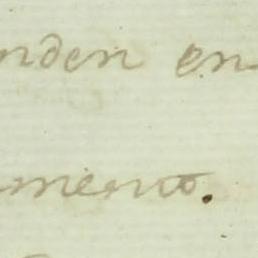 nden en
mento.